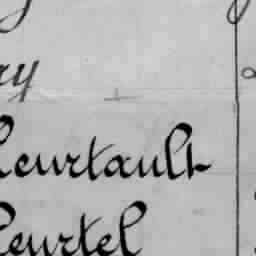 ry
Heurtault
Heurtel